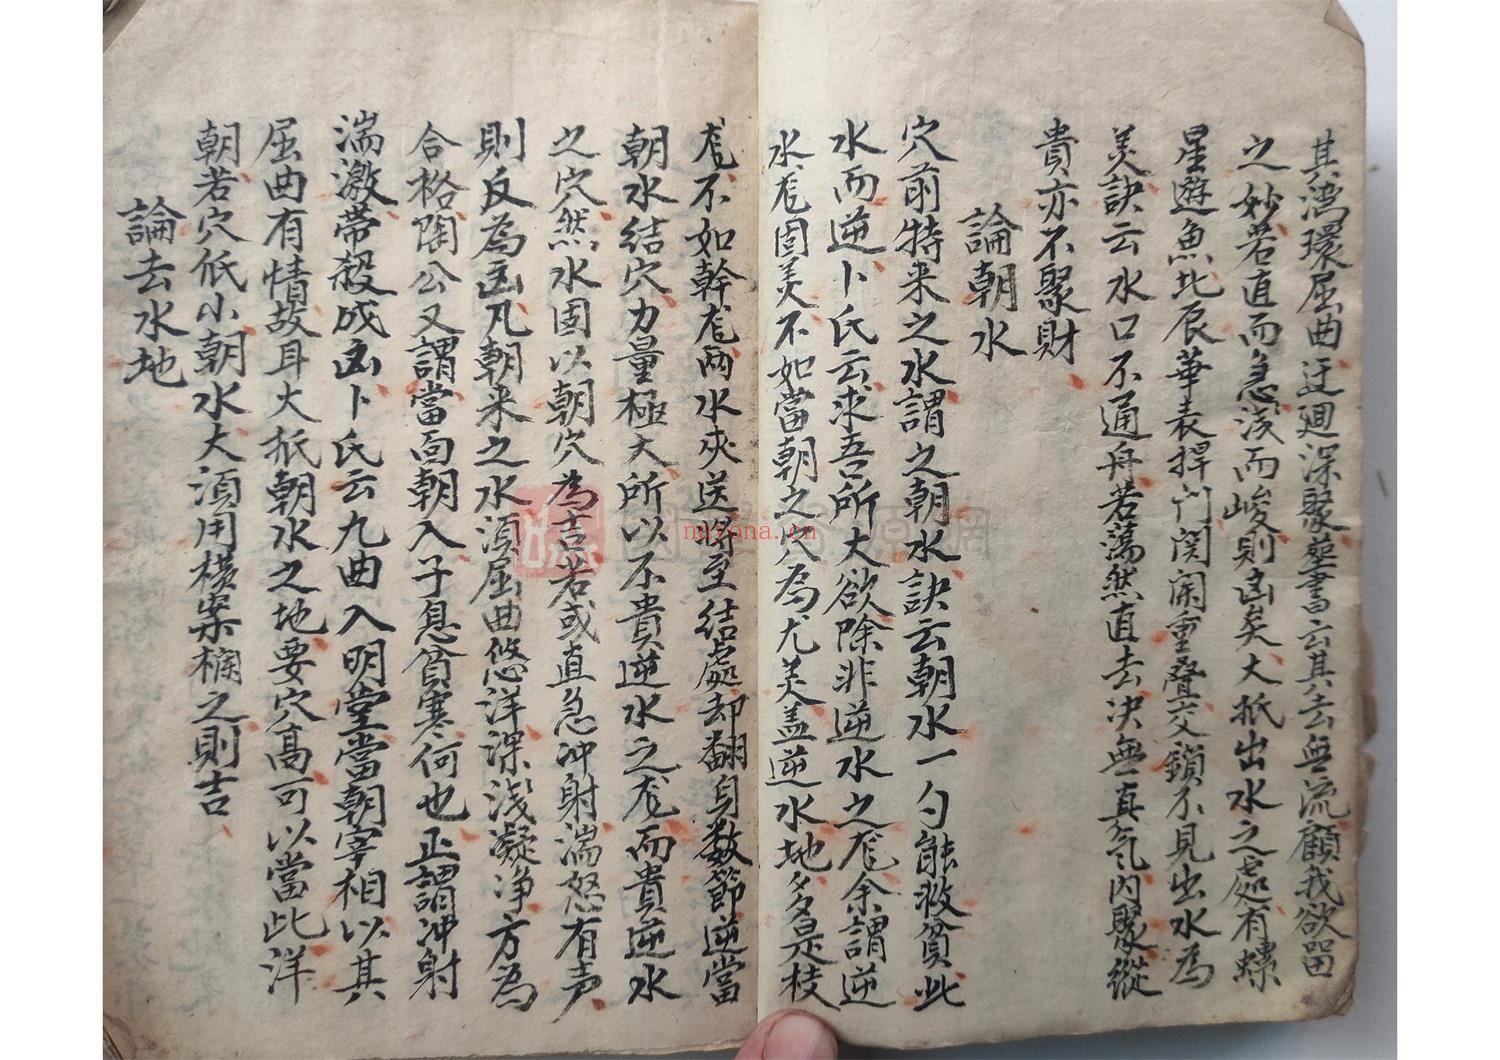 其灣環屈曲迂廻深聚塟書云其去無流顧我欲畱
之妙若直而急淺而峻則凶矣大抵出水之處有螺
星遊魚北辰華表捍门関闌重叠交鎖不見出水為
美訣云水口不通舟若蕩然直去决無真气内聚縱
貴亦不聚財
論朝水
穴前特来之水謂之朝水訣云朝水一勺能救貧此
水而逆卜氏云求吾所大欲除非逆水之龙余謂逆
水龙固美不如當朝之穴為尤美盖逆水地多是枝
龙不如幹龙两水夾送將至结處却翻身数節逆當
朝水结穴力量極大所以不贵逆水之龙而貴逆水
之穴然水固以朝穴為吉若或直急冲射湍怒有声
則反為凶凡朝来之水須屈曲悠洋深淺凝净方為
合格陶公又謂當面朝入子息貧寒何也正謂冲射
湍激帶殺成凶卜氏云九曲入明堂當朝宰相以其
屈曲有情故耳大抵朝水之地要穴高可以當此洋
朝若穴低小朝水大須用橫案欄之則吉
論去水地
nayona.cn